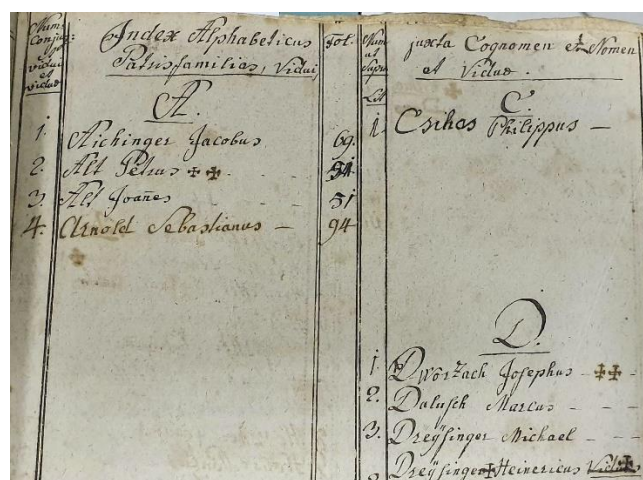 Num.
Conjug:
Vidui
et
Viduæ
Index Alphabeticus
Patrisfamilias, Vidui,
Fol.
A.
1. Aichinger Jacobus 69.
2. Alt Petrus ++ 51
3. Alt Joan̄es 51
4. Arnold Sebastianus – 94
Num
ut
Supra
Lit
juxta Cognomen et Nomen
et Viduæ.
C.
1. Csikos Philippus –
D.
1. Dwörzach Josephus – ++ –
2. Dalusch Marcus – – –
3. Dreÿsinger Michael – –
Dreÿsinger + Heinericus Viduus